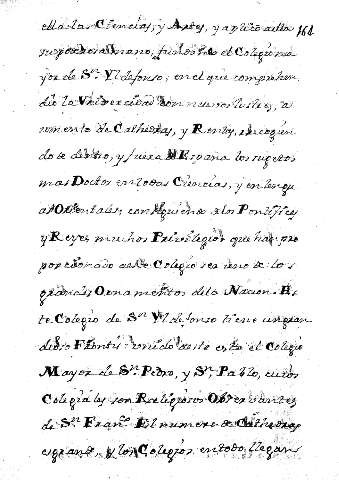 ella las Ciencias, y Artes, y aplicò a ella 164
su poderosa mano, fundose el Colegio ma
yor de Sn. Yldefonso, en el que comprehen
diò la Vniversidad con nuevos lustres, a
umento de Cathedras, y Rentas, escogien
do de dentro, y fuera de España los sugetos
mas Doctos en todas Ciencias, y en lengu
as Orientales, consiguiendo de los Pontifices
y Reyes muchos Privilegios que han pro
porcionado a este Colegio ser uno de los
grandes Ornamentos de la Nacion. Es
te Colegio de Sn. Yldefonso tiene un gran
dioso Frontis unido a este està el Colegio
Mayor de Sn. Pedro, y Sn. Pablo, cuios
Colegiales son Religiosos Observantes
de Sn. Franco. El numero de Cathedras
es grande y los Colegios en todo llegan